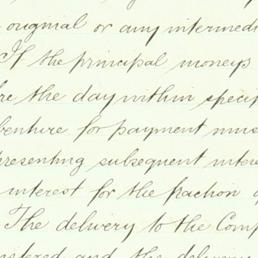 original or any intermedi
If the principal moneys
re the day within specif
benture for payment mus
presenting subsequent inter
interest for the fraction o
The delivery to the Comp
nstered and the deliver